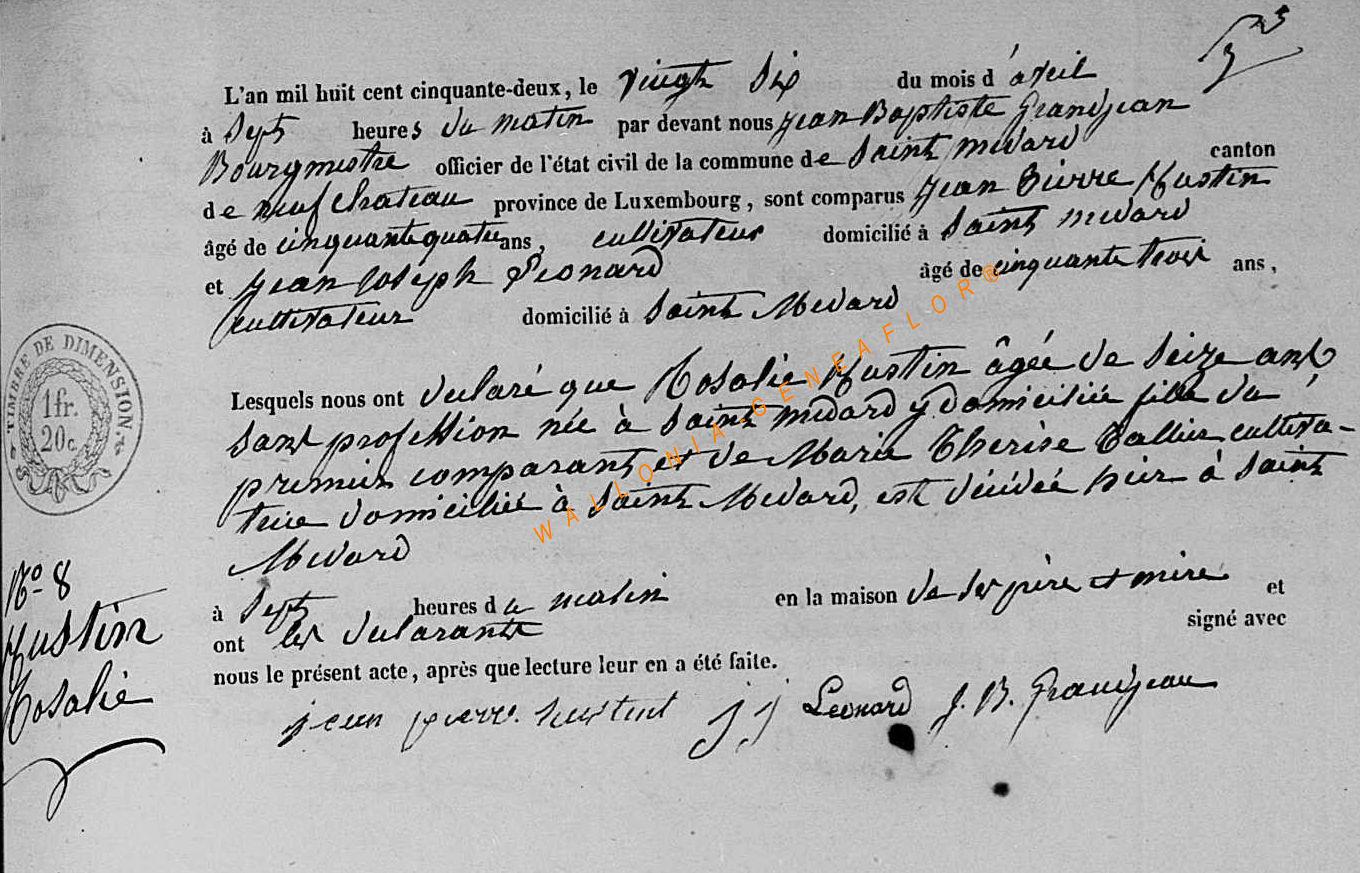 L'an mil huit cent cinquante-deux, le vingt six du mois d'avril
à Sept heures du matin par devant nous Jean Baptiste Grandjean
Bourgmestre officier de l'état civil de la commune de Saint medard canton
de neufchateau province de Luxembourg, sont comparus Jean Pierre Hustin
âgé de cinquante quatre ans, cultivateur domicilié à Saint medard
et Jean Joseph Leonard âgé de cinquante trois ans,
cultivateur domicilié à Saint Medard
Lesquels nous ont declaré que Rosalie Hustin âgée de Seize ans
sans profession née à Saint medard y domiciliée fille du
premier comparant et de Marie Therese cultiva-
trice domiciliée à Saint Medard, est décédée hier à Saint
Medard
à Sept heures du matin en la maison de ses père et mère et
ont les declarants signé avec
nous le présent acte, après que lecture leur en a été faite.
jean pierre hustint j j Leonard J. B. Grandjean
TIMBRE DE DIMENSION
1fr.
20c.
No. 8
Hustin
Rosalie
WALLONIA GENEAFLOR®